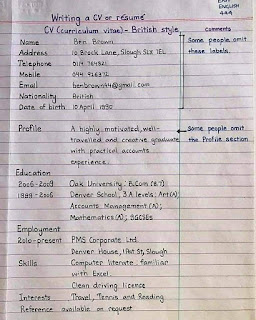 EASY
ENGLISH
444
Writing a CV or résumé
CV (curriculum vitae) - British style
Comments
Name Ben Brown
Some people omit
Address 10 Brock Lane, Slough SLX 1EL
these labels.
Telephone
Mobile
Email benbrown44@gmail.com
Nationality British
Date of birth 10 April
Profile A highly, motivated, well-
Some people omit
travelled and creative graduate
the Profile section
with practical accounts
experience.
Education
2006-2009 Oak University: B.Com
1999-2006 Denver School; 3 A levels: Art(A);
Accounts Management (A);
Mathematics (A); 9GCSEs
Employment
2010-present PMS Corporate Ltd
Denver House, Slough
Skills Computer literate: familiar
with Excel
Clean driving licence
Interests Travel, Tennis and Reading
Reference available on request